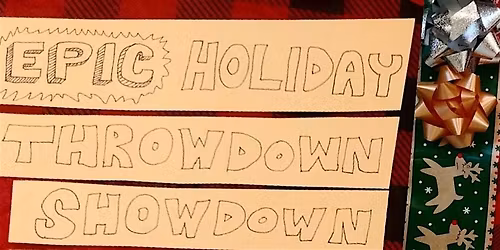 EPIC HOLIDAY
THROWDOWN
SHOWDOWN